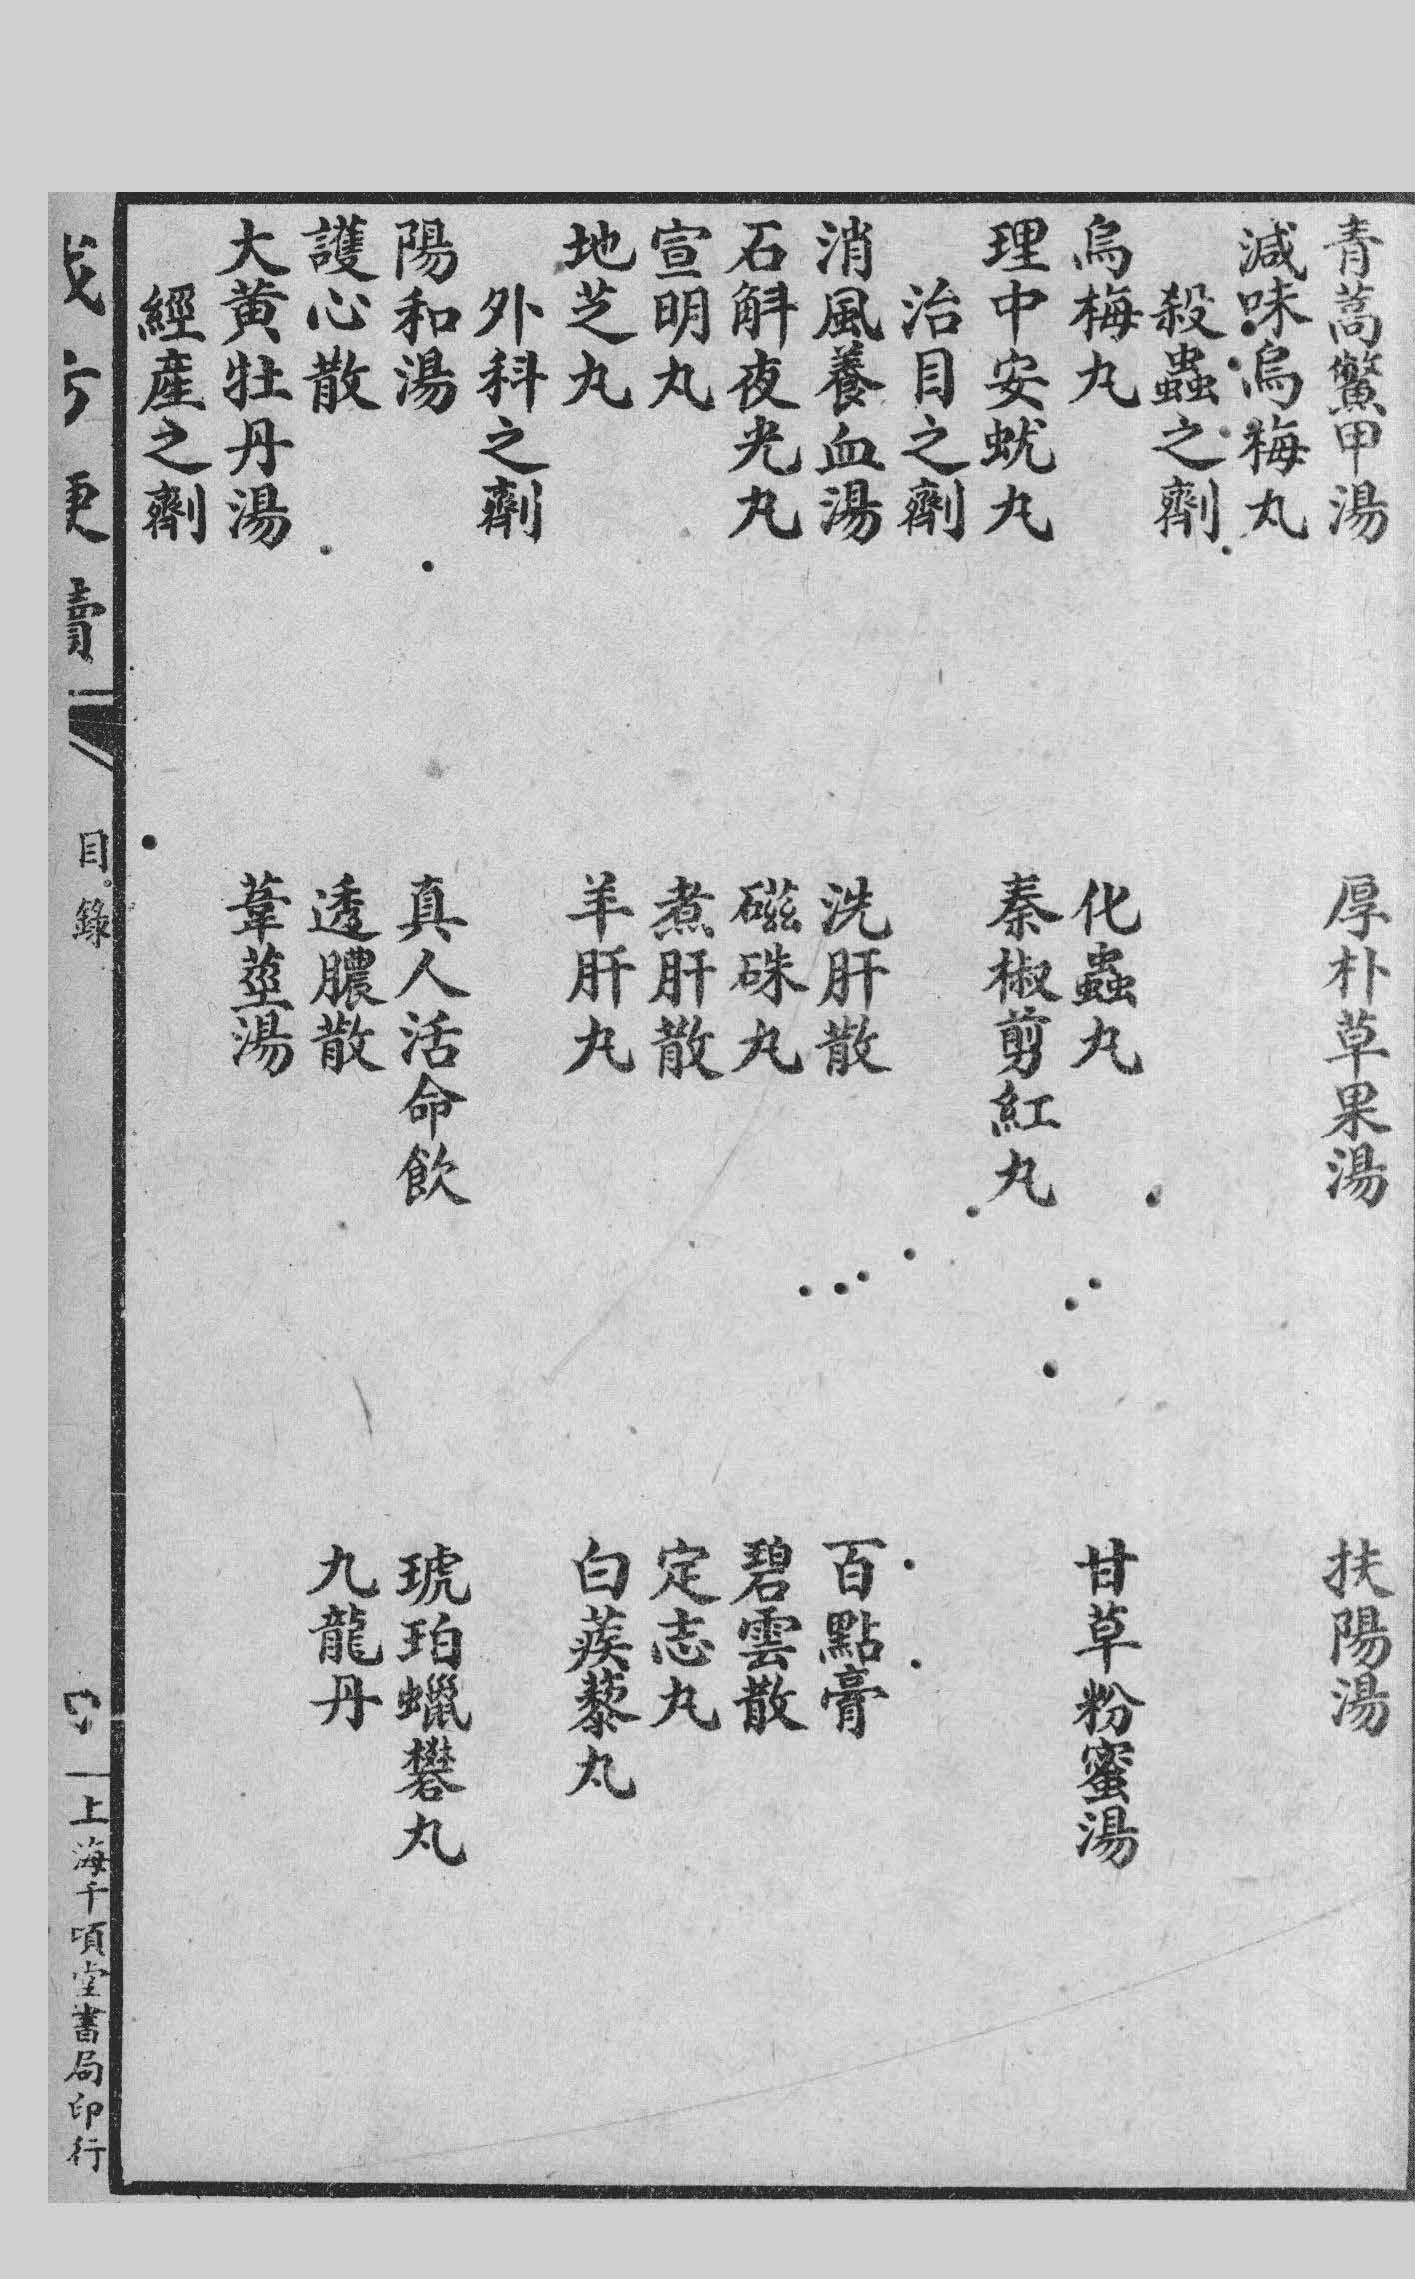 青蒿鱉甲湯　厚朴草果湯　扶陽湯
減味烏梅丸
殺蟲之劑
烏梅丸　化蟲丸　甘草粉蜜湯
理中安蚘丸　秦椒剪紅丸
治目之劑
消風養血湯　洗肝散　百點膏
石斛夜光丸　磁硃丸　碧雲散
宣明丸　煮肝散　定志丸
地芝丸　羊肝丸　白蒺藜丸
外科之劑
陽和湯　真人活命飲　琥珀蠟礬丸
護心散　透膿散　九龍丹
大黃牡丹湯　葦莖湯
經產之劑
成方便讀　目錄　四　上海千頃堂書局印行